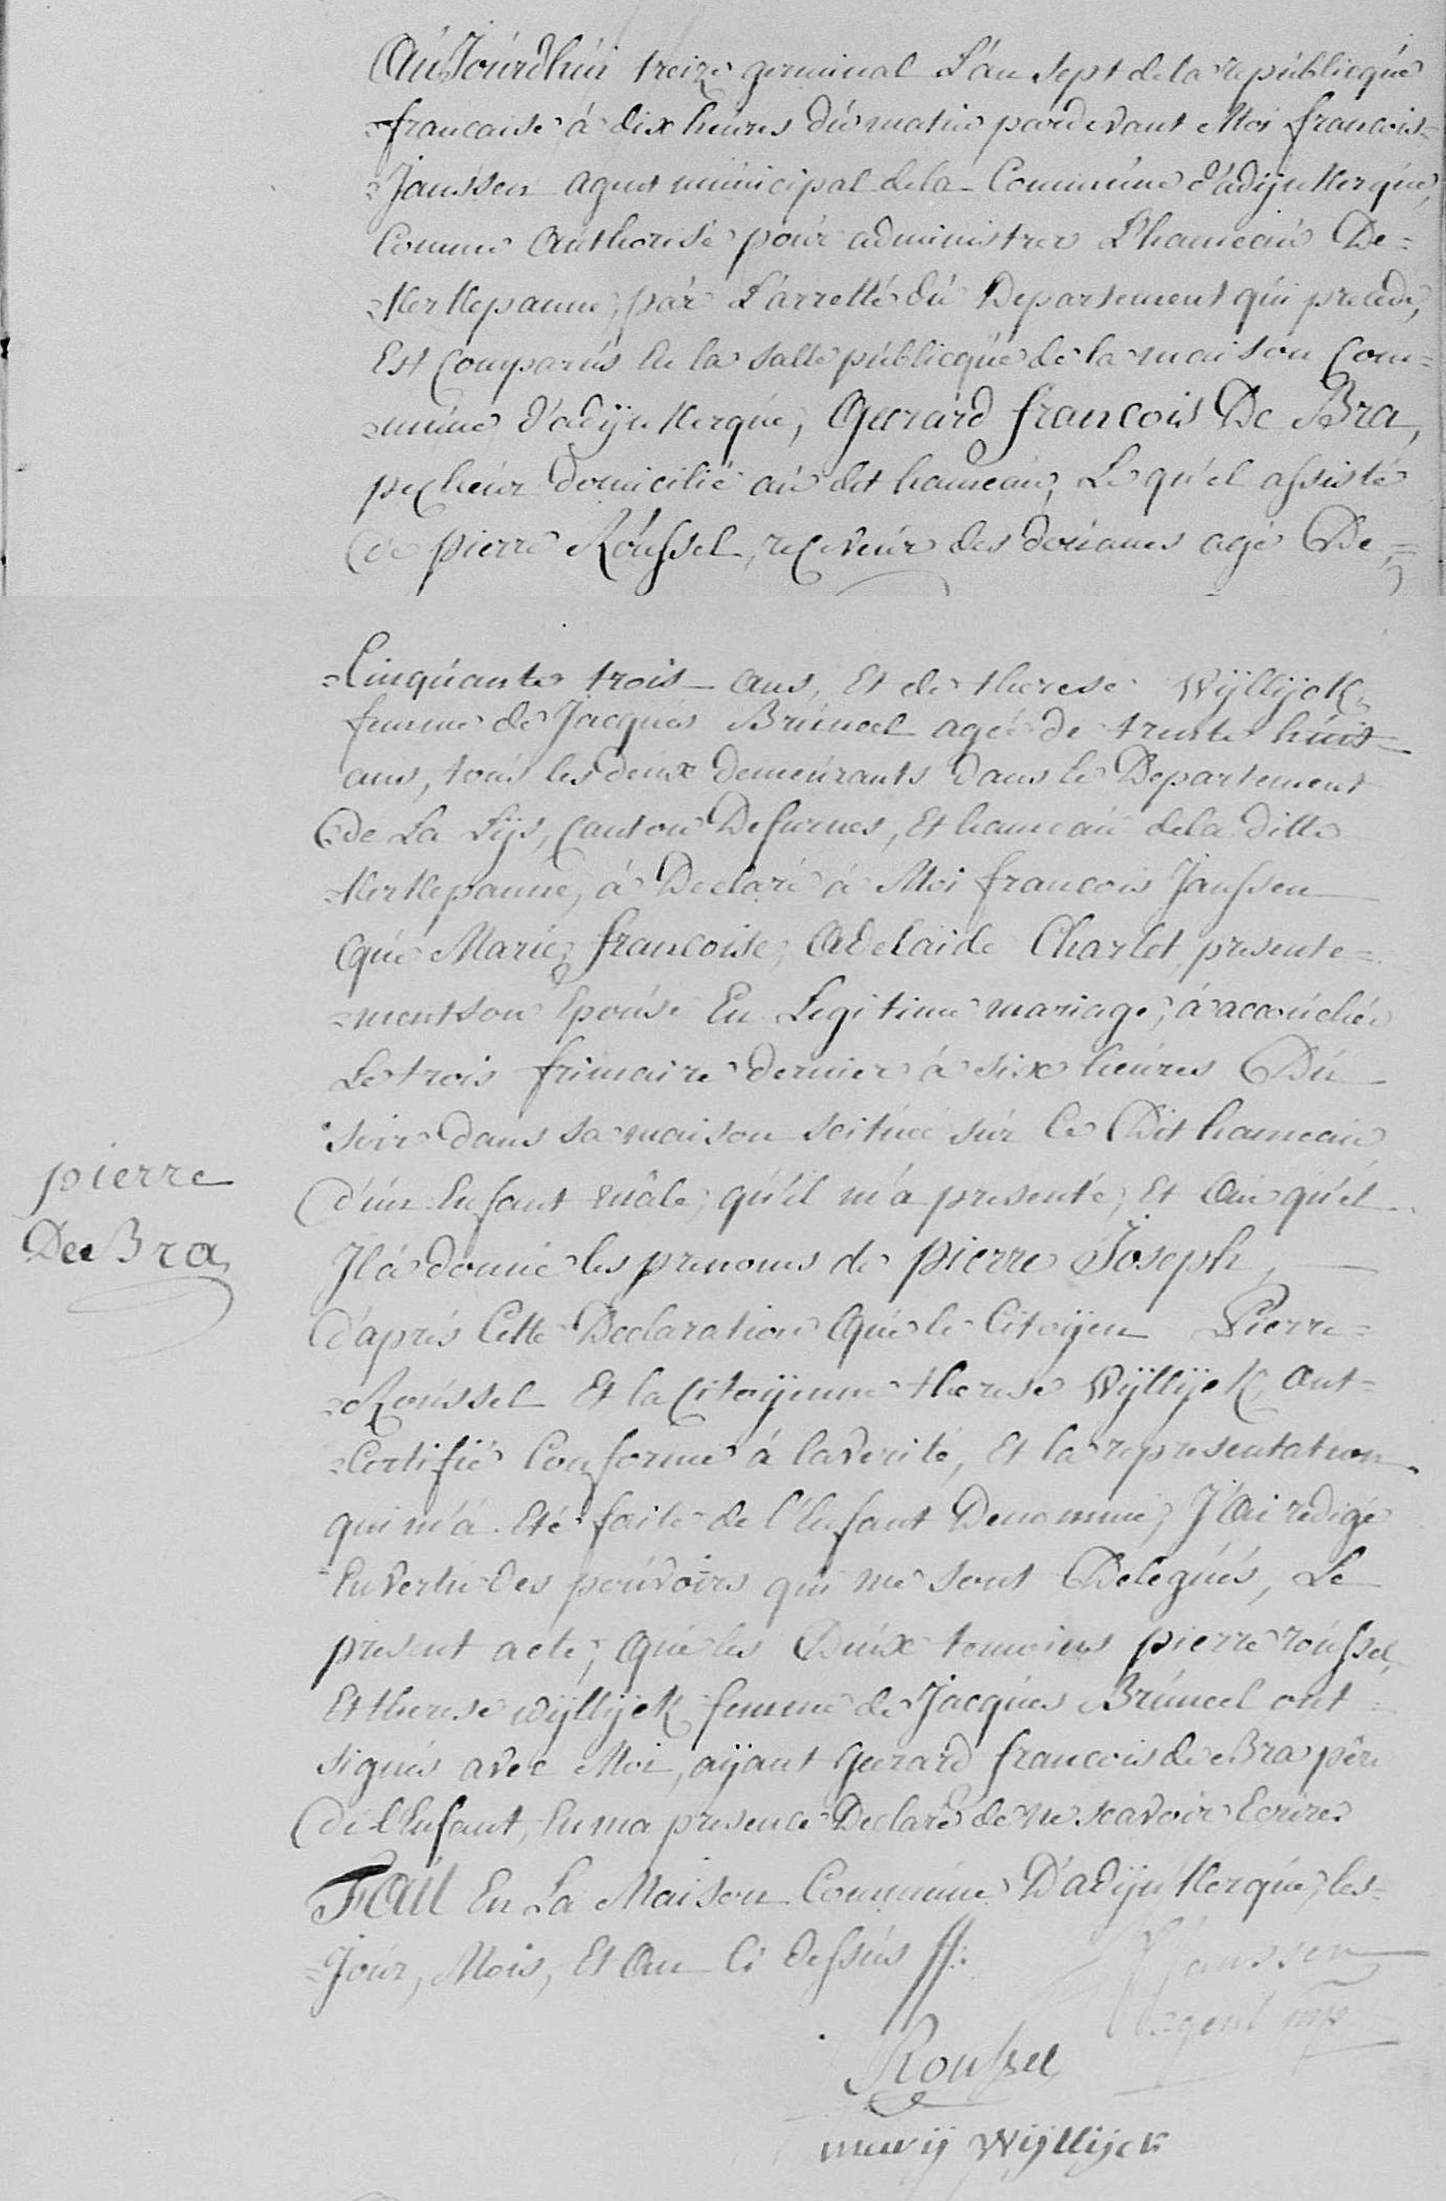 AuJourdhui treize germinal L'an sept de la republicque
francaise à dix heures du matin pardevant Moi francois=
=Janssen agent municipal dela Commune d'adijnkerque,
Comme Authorisé pour administrer L'hameau De=
=Kerkepanne, par L'arretté du Departement qui precede,
Est Comparus En la salle publicque de la maison Com=
=mune d'adijnkerque, Gerard francois De Bra,
pecheur domicilié au dit hameau, Le qu'el assisté
de pierre Roussel, receveur des douanes agé De=
=Cinquante trois ans, Et de therese Wÿllÿck,
femme de Jacques Bruneel agée de trente huit=
ans, tous les deux demeurants dans le Departement
de La Lÿs, Canton De furnes, Et hameau dela ditte
Kerkepanne, à Declaré à Moi francois Janssen
que Marie, francoise, Adelaide Charlet, presente=
=ment son Epouse En Legitime mariage, à accouchée
Le trois frimaire dernier à six heures Du
soir dans sa maison scituée sur Ce Dit hameau
d'un Enfant mâle, qu'il m'a presenté, Et Au qu'el
Il à donné les prenoms de pierre Joseph,
d'après Cette Declaration Que le Citoÿen Pierre=
=Roussel Et la Citoÿenne therese Wÿllÿck, Ont=
=Certifié Conforme à la verité, Et la representation
qui m'à Eté faite de l'Enfant Denommé, J'Ai redigé
En vertu des pouvoirs qui me sont Delegués, Le
present acte, Que les Deux temoins pierre roussel,
Et therese wÿllÿck femme de Jacques Bruneel ont=
signés avec Moi, aÿant Gerard francois de Bra père
de l'Enfant, En ma presence Declaré de ne scavoir Ecrire
FAit En La Maison Commune D'adijnkerque, les=
=Jour, Mois, Et An Ci dessus //:
pierre
De Bra
Janssen
agent mp
Roussel
marÿ wÿllÿck